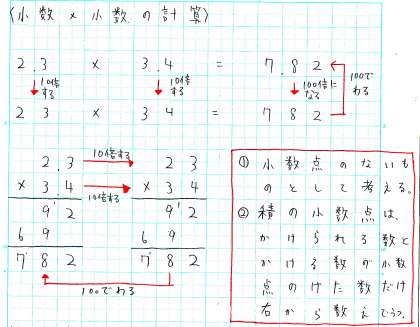 〈小数×小数の計算〉
2.3 × 3.4 = 7.82
10倍する 10倍する 100倍になる 100でわる
23 × 34 = 782
2.3 10倍する 23
×3.4 10倍する ×34
92 92
69 69
7.82 782
100でわる
① 小数点のないも
のとして考える。
② 積の小数点は、
かけられる数と
かける数の小数
点のけた数だけ
右から数えてうつ。